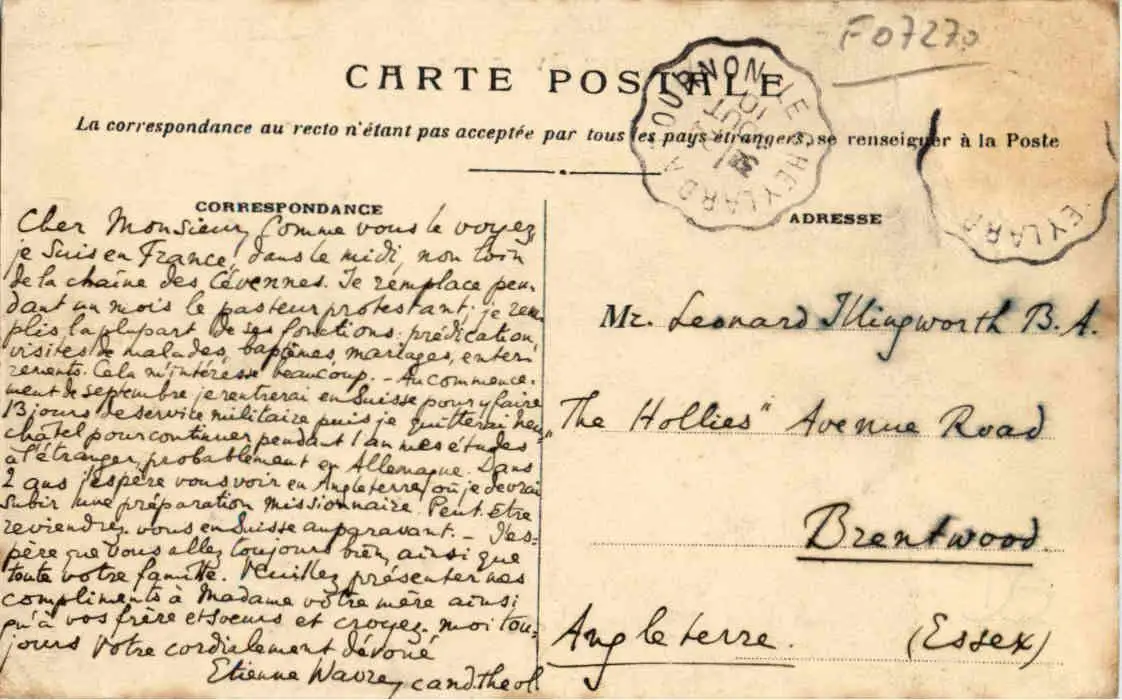 F07270
CARTE POSTALE
La correspondance au recto n'étant pas acceptée par tous les pays étrangers, se renseigner à la Poste
TOURNON LE CHEYLARD A
10
AOUT
EYLARD
CORRESPONDANCE
Cher Monsieur, Comme vous le voyez,
je suis en France, dans le midi, non loin
de la chaîne des Cévennes. Je remplace pen-
dant un mois le pasteur protestant; je rem-
plis la plupart de ses fonctions: prédication,
visites de malades, baptêmes, mariages, enter-
rements. Cela m'intéresse beaucoup. - Au commence-
ment de septembre je rentrerai en Suisse pour y faire
13 jours de service militaire puis je quitterai Neu-
châtel pour continuer pendant 1 an mes études
à l'étranger, probablement en Allemagne. Dans
2 ans j'espère vous voir en Angleterre, où je devrai
subir une préparation missionnaire. Peut-être
reviendrez-vous en Suisse auparavant. - J'es-
père que vous allez toujours bien, ainsi que
toute votre famille. Veuillez présenter mes
compliments à Madame votre mère ainsi
qu'à vos frère et soeurs et croyez-moi tou-
jours votre cordialement dévoué
Etienne Wavre, cand. theol
ADRESSE
Mr. Leonard Illingworth B. A.
"The Hollies" Avenue Road
Brentwood
Angleterre. (Essex)